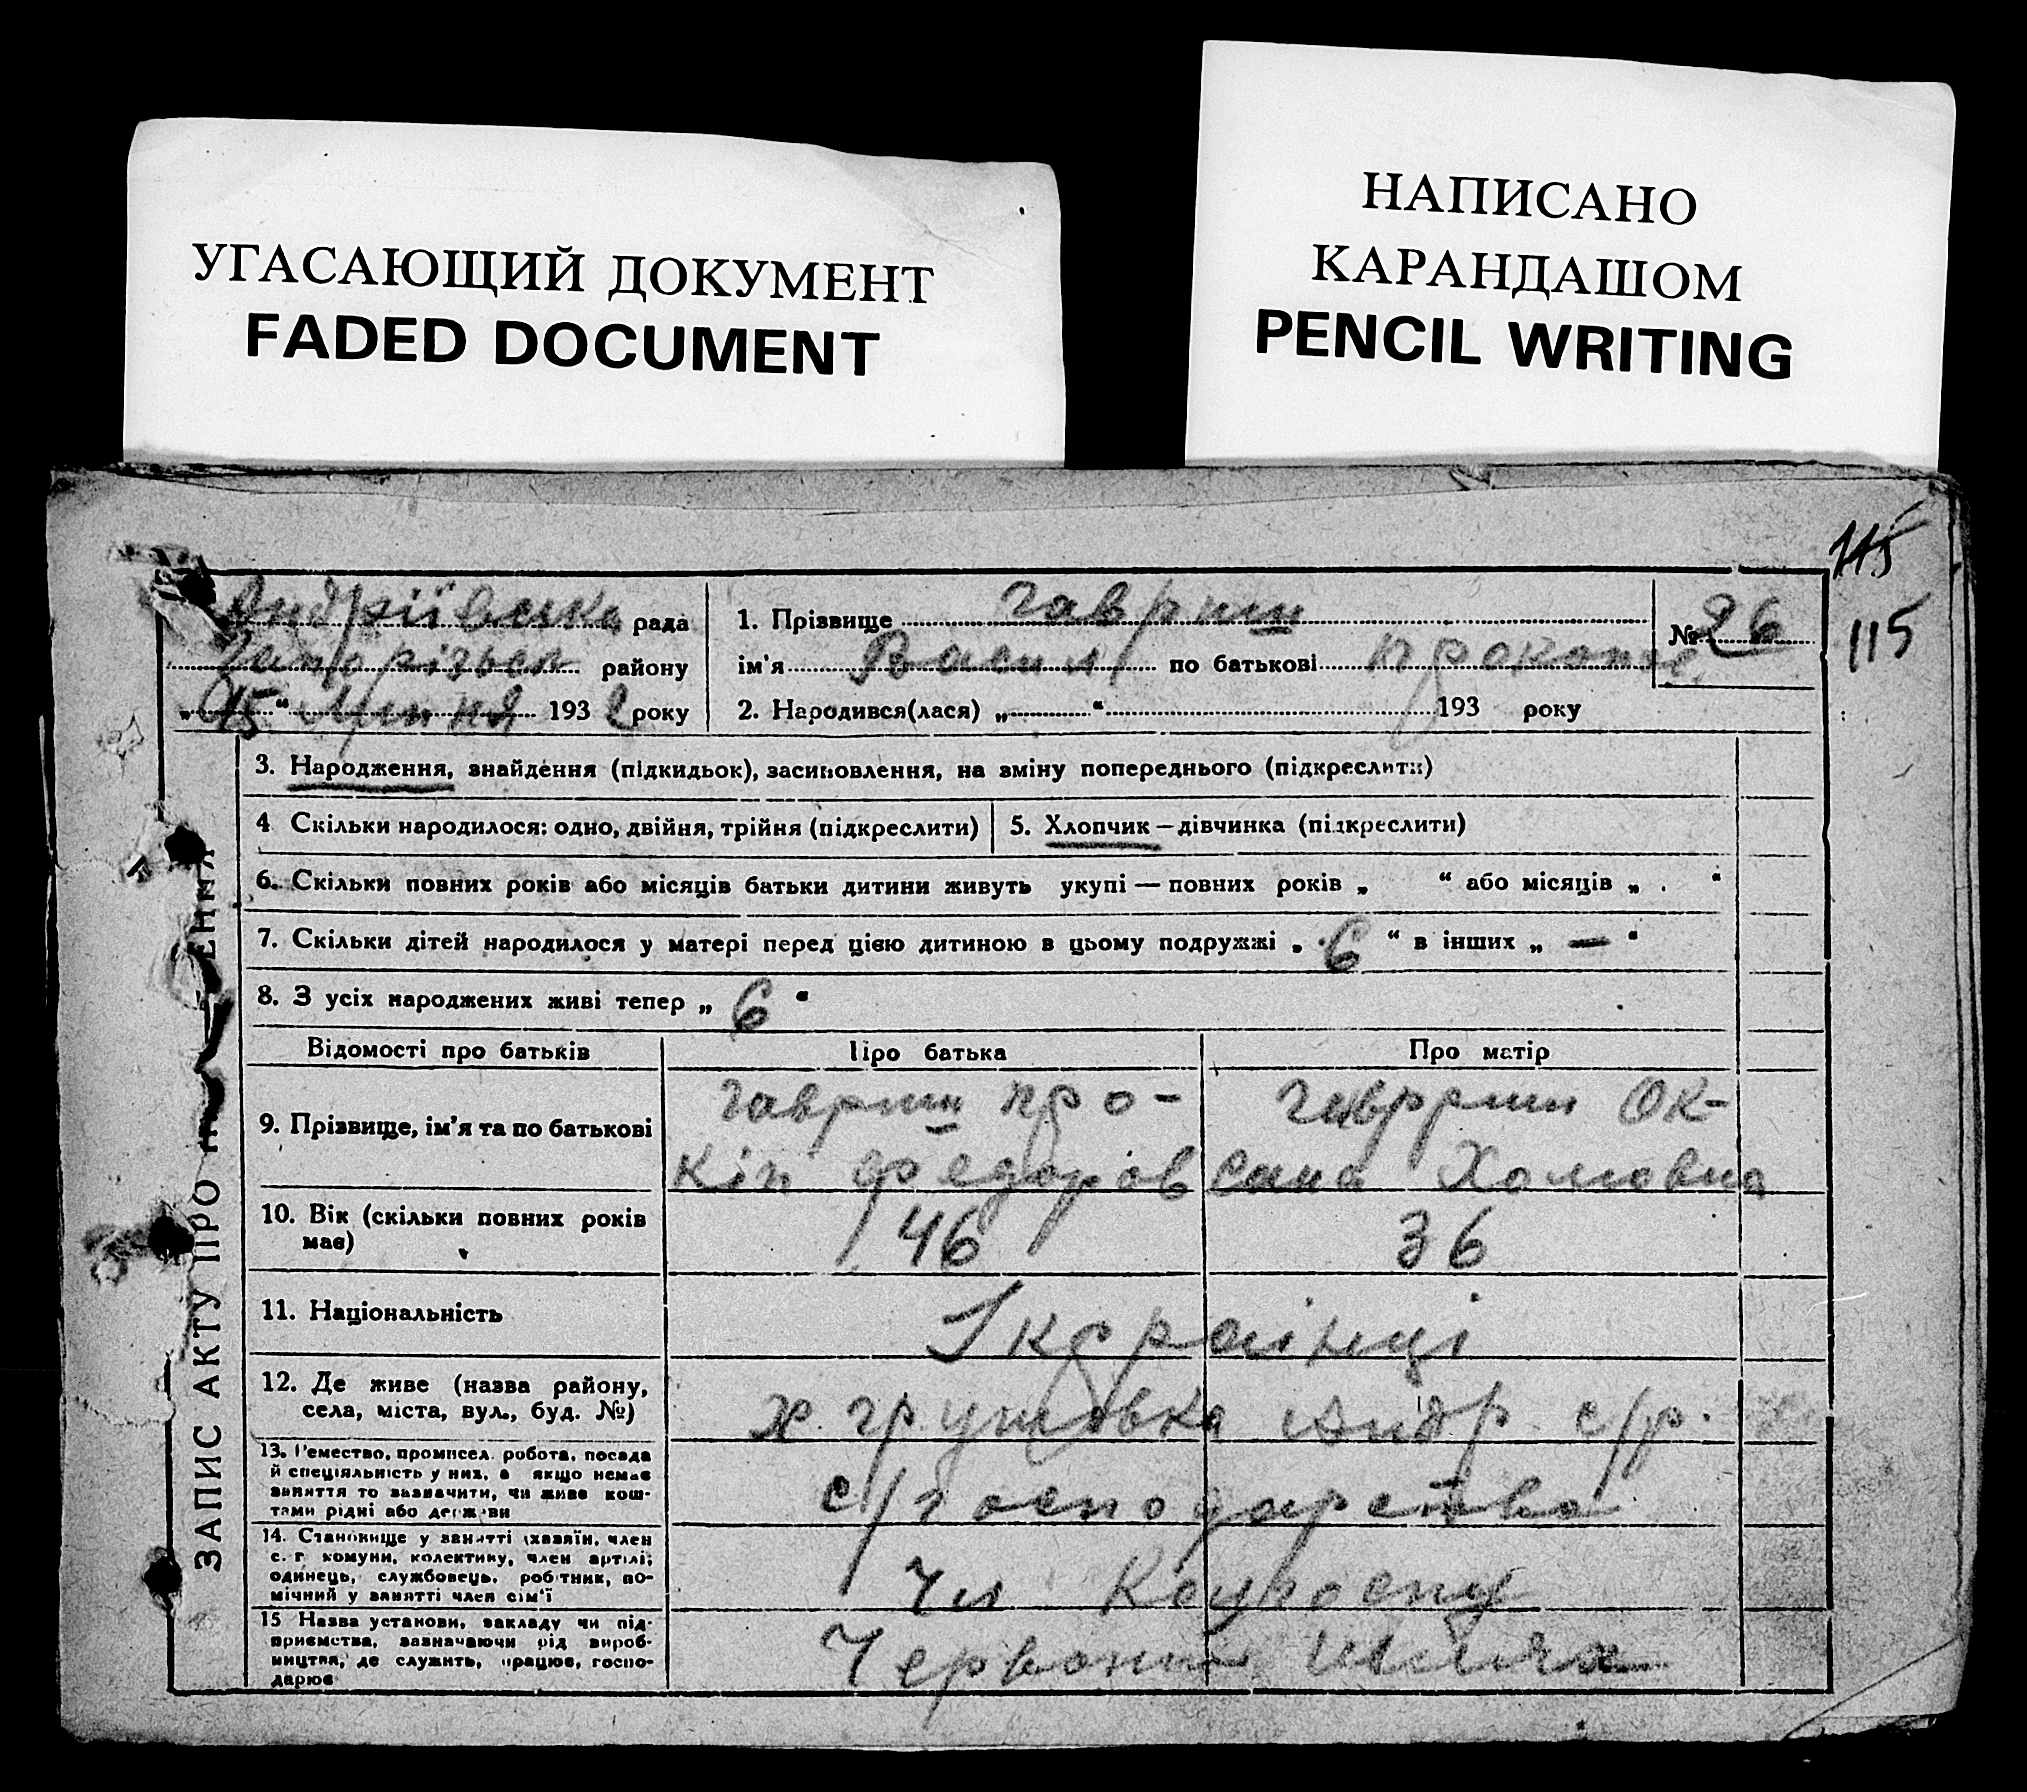 УГАСАЮЩИЙ ДОКУМЕНТ
FADED DOCUMENT
НАПИСАНО
КАРАНДАШОМ
PENCIL WRITING
115
115
Андріївська рада
району
„15“ 193 2 року
1. Прізвище Гавриш
ім'я Василь по батькові Прокопов
№ 26
2. Народився(лася) „ “ 193 року
ЗАПИС АКТУ ПРО
3. Народження, знайдення (підкидьок), засиновлення, на зміну попереднього (підкреслити)
4 Скільки народилося: одно, двійня, трійня (підкреслити)
5. Хлопчик – дівчинка (підкреслити)
6. Скільки повних років або місяців батьки дитини живуть укупі — повних років „ “ або місяців „ “
7. Скільки дітей народилося у матері перед цією дитиною в цьому подружжі „ 6 “ в інших „ — “
8. З усіх народжених живі тепер „ 6 “
Відомості про батьків
Про батька
Про матір
9. Прізвище, ім'я та по батькові
Гавриш Про-
кіп Федоров
Гавриш Ок-
сана Хомовна
10. Вік (скільки повних років
має)
46
36
11. Національність
Українці
12. Де живе (назва району,
села, міста, вул., буд. №)
х. Грушовка Андр с/р.
13. Ремество, промисел, робота, посада
й спеціяльність у них, а якщо немає
заняття то зазначити, чи живе кош-
тами рідні або держави
с/господарство
14. Становище у занятті (хазяїн, член
с. г. комуни, колективу, член артілі,
одинець, службовець, робітник, по-
мічний у занятті член сім'ї
Чл Колгоспу
15 Назва установи, закладу чи під-
приємства, зазначаючи рід вироб-
ництва, де служить, працює, госпо-
дарює
Червоний Шлях